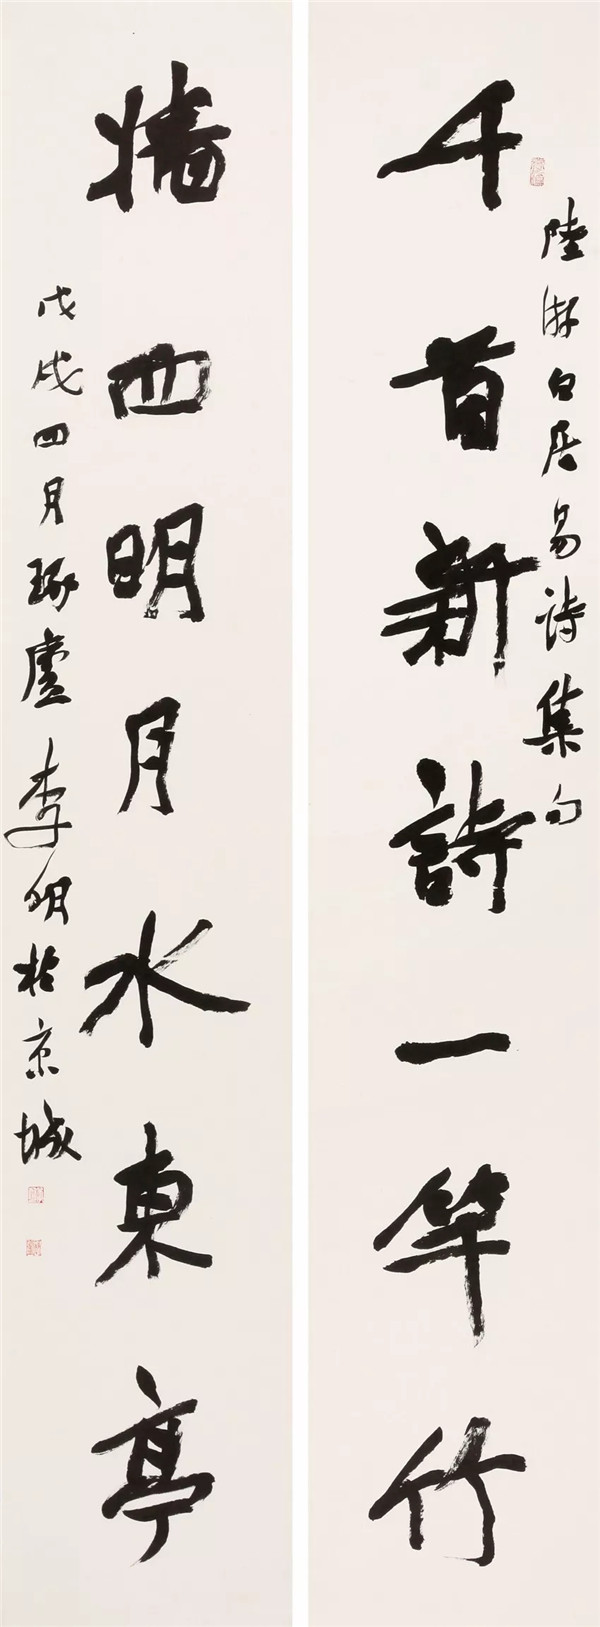 陸游白居易詩集句
千首新詩一竿竹
牆西明月水東亭
戊戌四月琢盧李明於京城